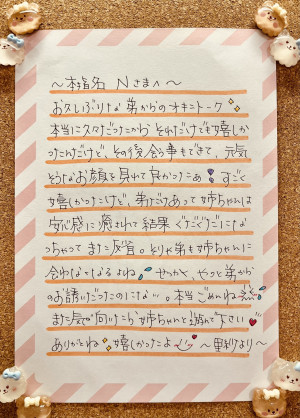 〜本指名 Nさまへ〜
お久しぶりな弟からのオキニトーク
本当に久々だったから それだけでも嬉しか
ったんだけど、その後会う事もできて、元気
そうなお顔を見れて良かったぁ すごく
嬉しかったけど、弟だけあって姉ちゃんは
安心感に癒されて結果ぐだぐだにな
っちゃってまた反省。そりゃ弟も姉ちゃんに
会わなくなるよね せっかく、やっと弟から
のお誘いだったのにな…。本当ごめんね
また気が向いたら姉ちゃんと遊んで下さい
ありがとね 嬉しかったよ 〜里紗より〜